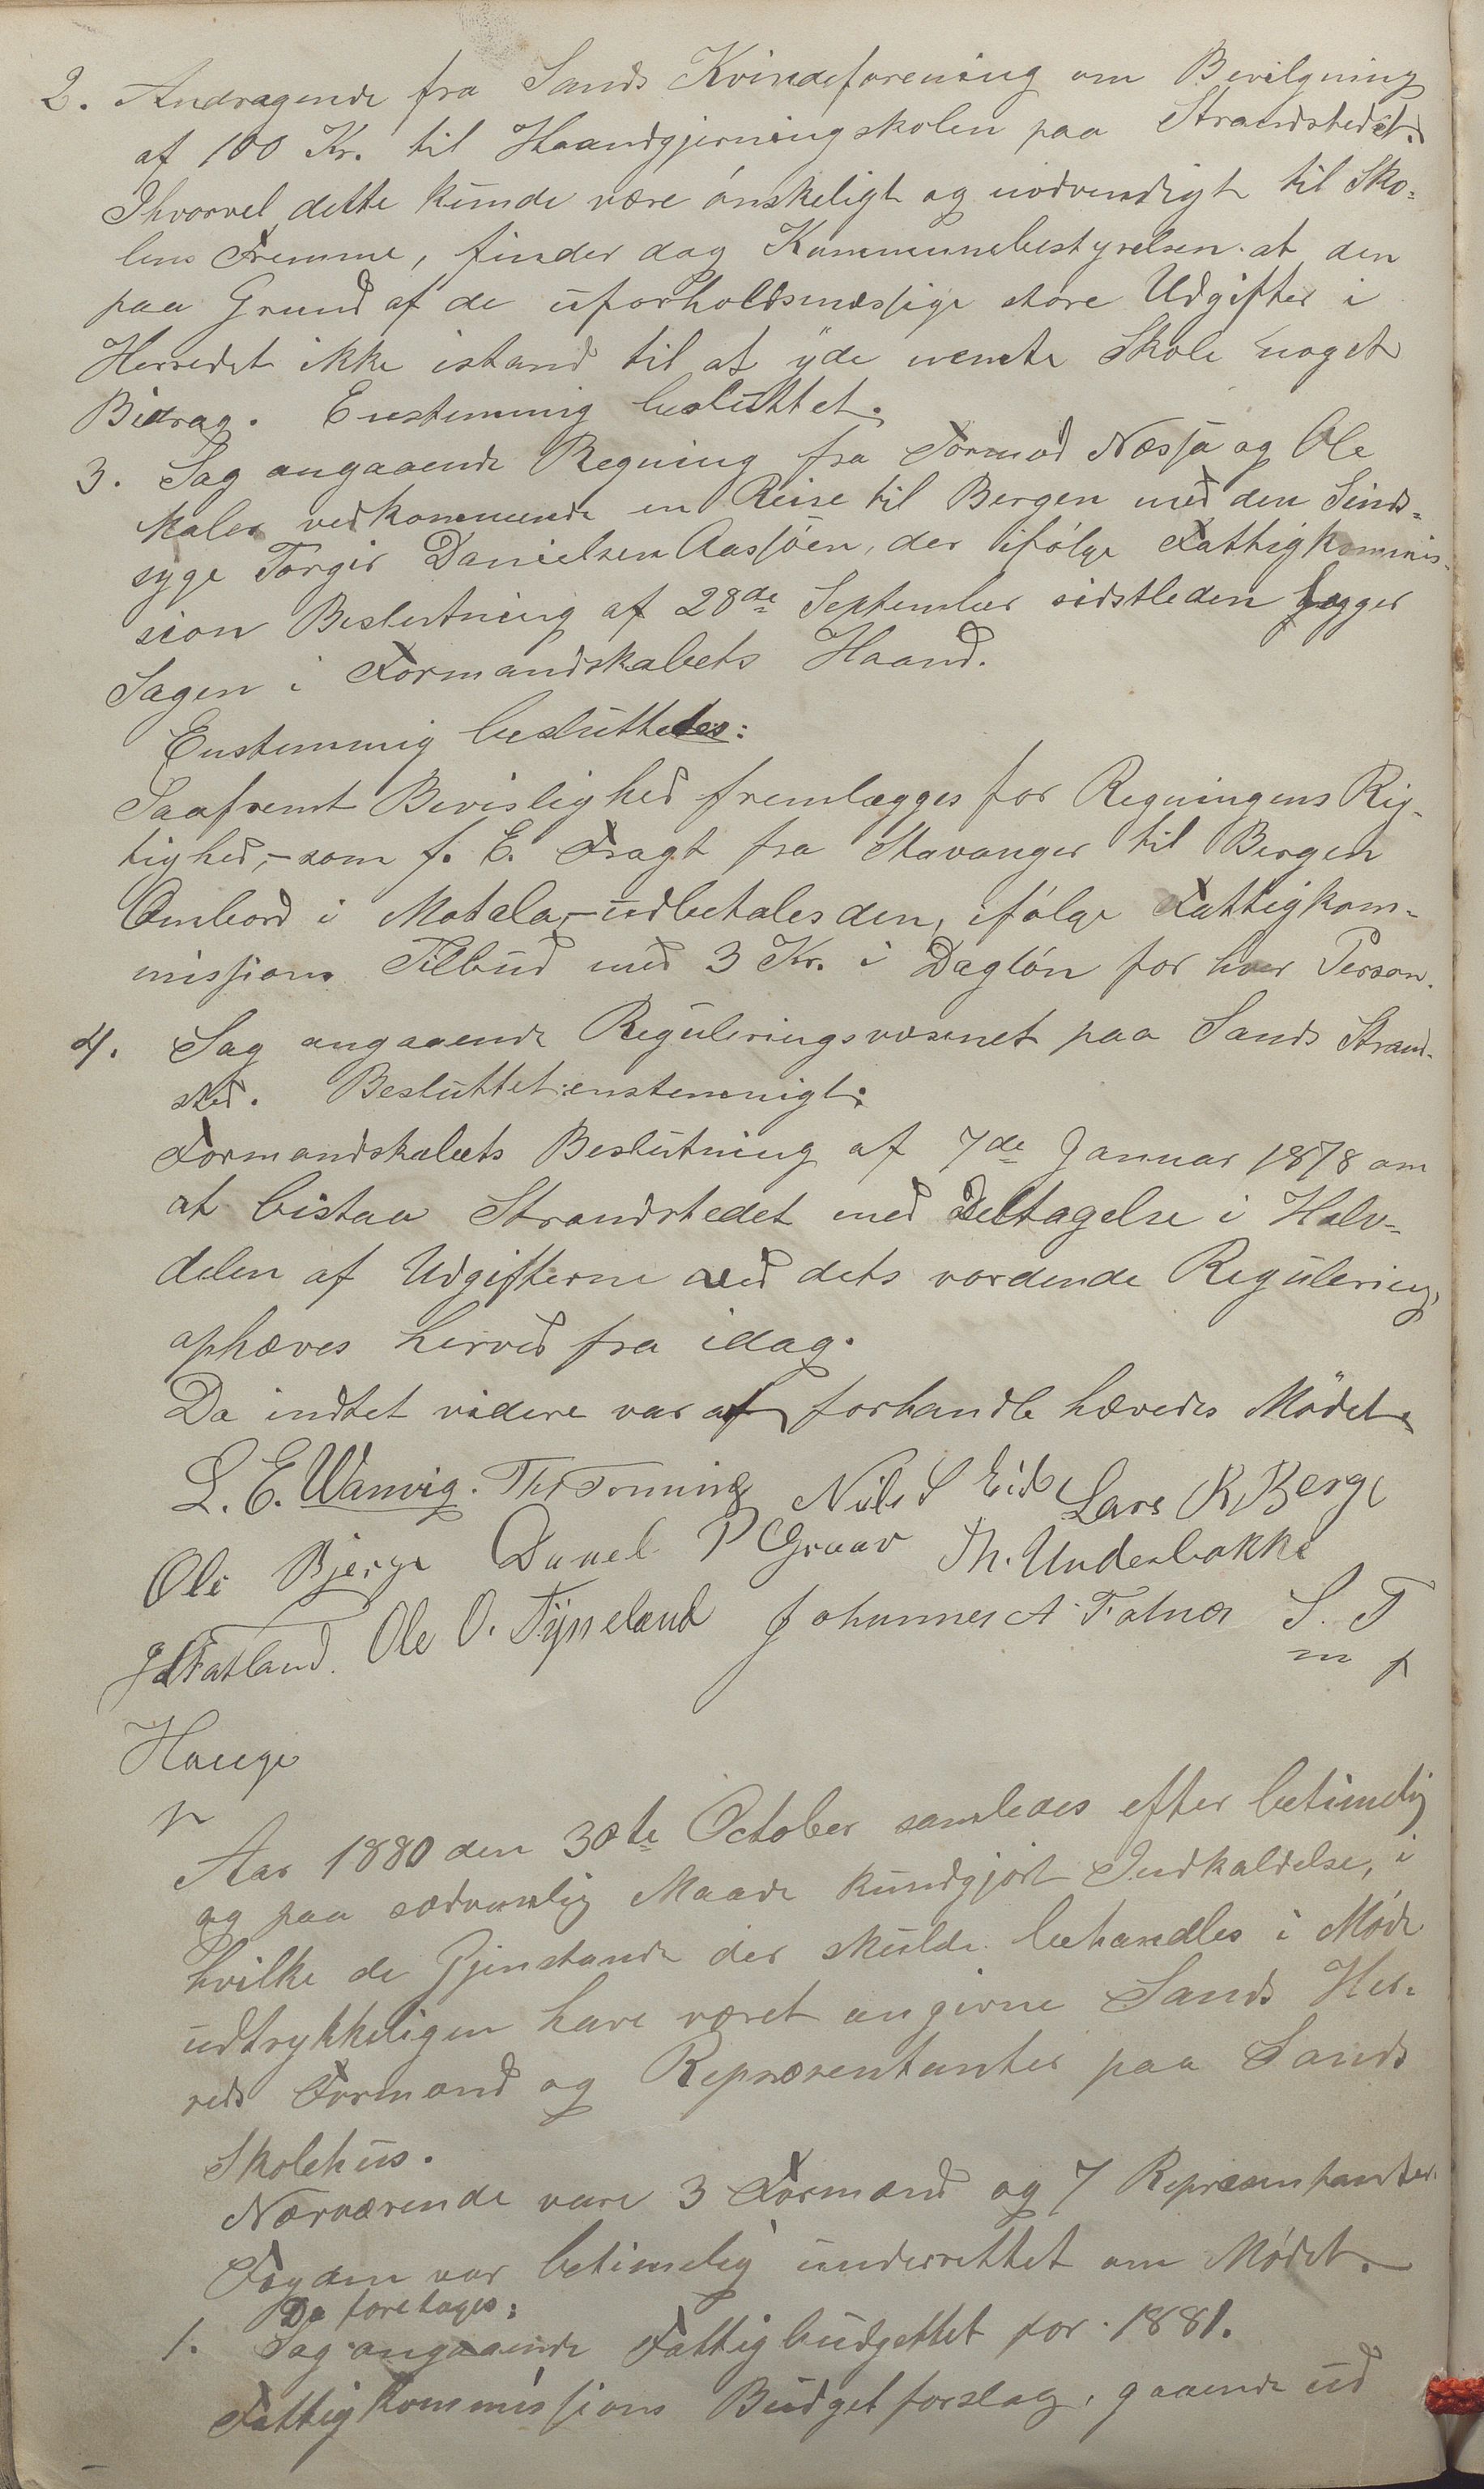 2. Andragende fra Sands Kvindeforening om Bevilgning
af 100 Kr. til Haandgjerningskolen paa Strandstedet.
Ihvorvel dette kunde være ønskeligt og nødvendigt til Sko-
lens Fremme, finder dog Kommunebestyrelsen at den
paa Grund af de uforholdsmæssige store Udgifter i
Herredet ikke istand til at yde nævnte Skole noget
Bidrag. Enstemmig besluttet.
3. Sag angaaende Regning fra Tormod Næssja og Ole
Maler vedkommende en Reise til Bergen med den Sinds-
syge Torgir Danielsen Aasjøen, der ifølge Fattigkommis-
sion Beslutning af 28de September sidstleden lægger
Sagen i Formandskabets Haand.
Enstemmig besluttedes:
Saafremt Bevislighed fremlægges for Regningens Rig-
tighed, - som f. E. Fragt fra Stavanger til Bergen
Ombord i Motala, - udbetales den, ifølge Fattigkom-
missions Tilbud med 3 Kr. i Dagløn for hver Person.
4. Sag angaaende Reguleringsvæsenet paa Sands Strand-
sted. Besluttet enstemmigt:
Formandskabets Beslutning af 7de Januar 1878 om
at bistaa Strandstedet med Deltagelse i Halv-
delen af Udgifterne ved dets vordende Regulering,
ophæves herved fra idag.
Da indtet videre var at forhandle hævedes Mødet.
L. E. Wanvig. Th Tonning Nils S Eide Lars R Berge
Ole Bjerge Danel P Graav Th. Underbakke
J Fatland. Ole O. Tysseland Johannes A. Fatnes S. T
m p
Hauge
Aar 1880 den 30te October samledes efter betimelig
og paa sædvanlig Maade kundgjort Indkaldelse, i
hvilke de Gjenstande der skulde behandles i Møde
udtrykkeligen have været angivne Sands Her-
reds Formænd og Repræsentanter paa Sands
Skolehus.
Nærværende vare 3 Formænd og 7 Repræsentanter.
Fogden var betimelig underrettet om Mødet.
Da foretages:
1. Sag angaaende Fattigbudgettet for 1881.
Fattigkommissions Budgetforslag, gaaende ud